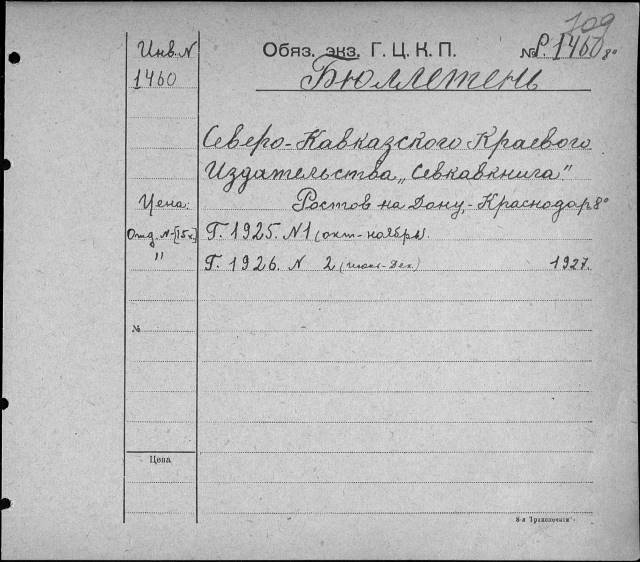 109
Инв. N Обяз. экз. Г. Ц. К. П. № Р. 1460 8°
1460 Бюллетень
Северо-Кавказского Краевого
Издательства „Севкавкнига".
Цена: Ростов на Дону,-Краснодар 8°
Отд. N-[15к.] Г. 1925. N1 (окт-ноябрь).
" Г. 1926. N 2 (июнь-Дек.) 1927.
№
Цена
8-я